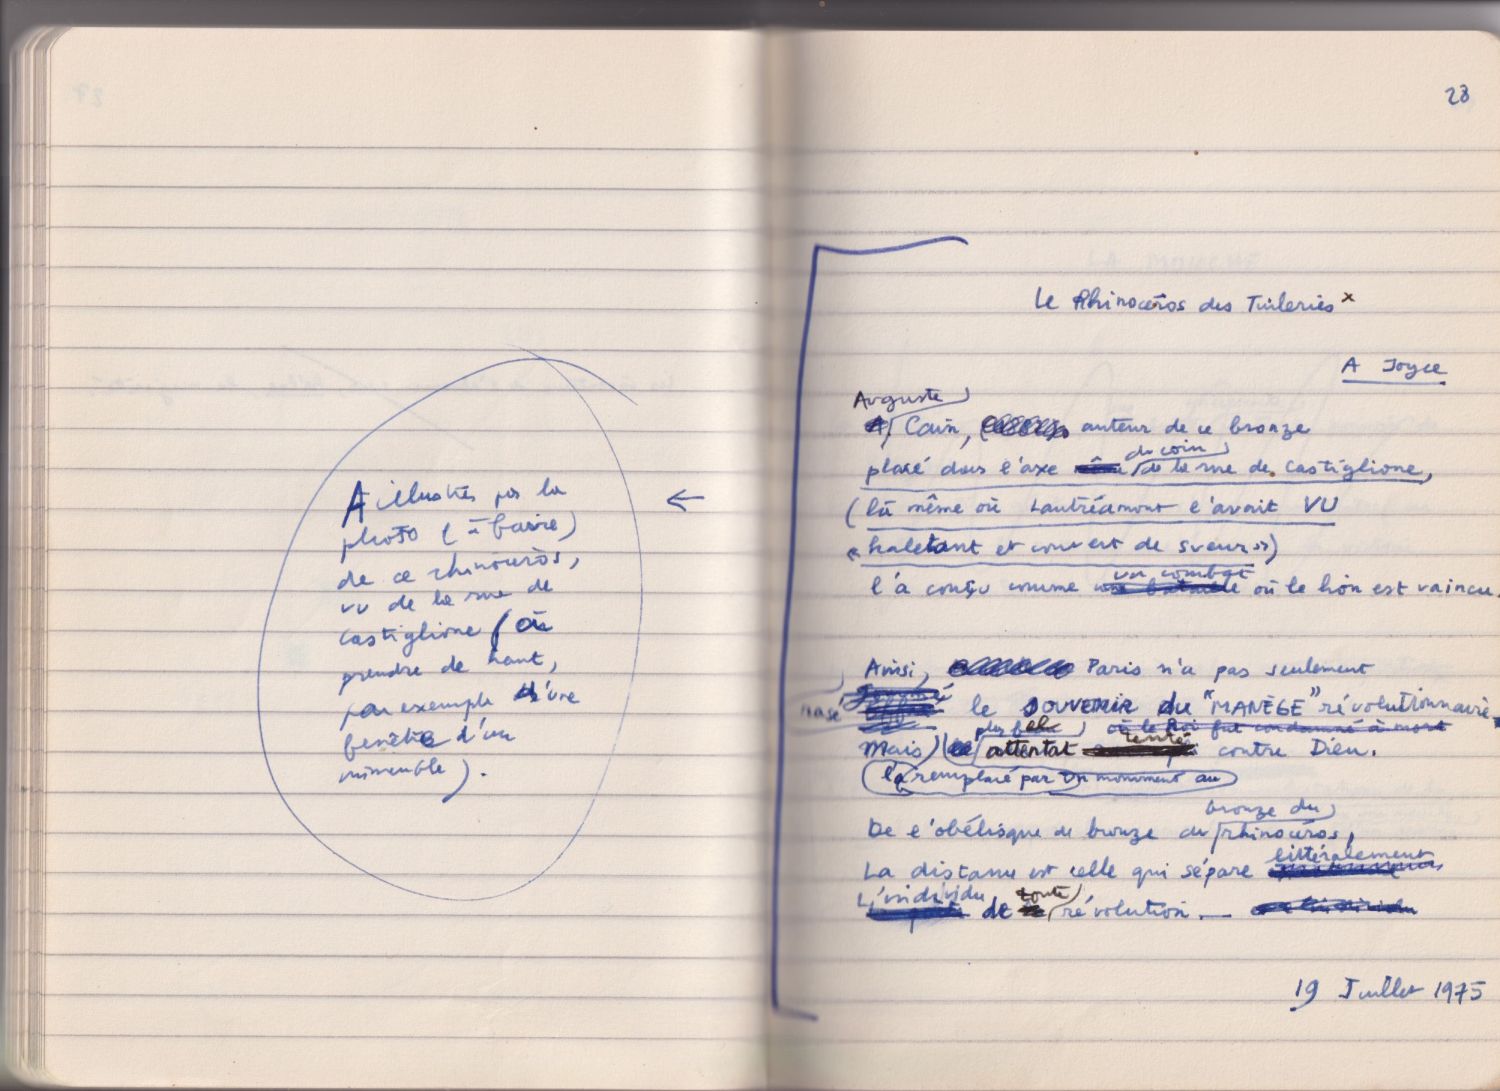 A illustrer par la
photo (à faire)
de ce rhinocéros,
vu de la rue de
Castiglione (à
prendre de haut,
par exemple d'une
fenêtre d'un
immeuble).
←
28
Le Rhinocéros des Tuileries x
A Joyce
Auguste
Cain, auteur de ce bronze
du coin
placé dans l'axe de la rue de Castiglione,
(là même où Lautréamont l'avait VU
« haletant et couvert de sueur »)
un combat
l'a conçu comme où le lion est vaincu.
Ainsi, Paris n'a pas seulement
rasé le SOUVENIR du "MANÈGE" révolutionnaire
où le Roi fut condamné à mort
Mais) attentat tenté contre Dieu.
l'a remplacé par un monument au
bronze du
De l'obélisque de bronze du rhinocéros,
littéralement
La distance est celle qui sépare
L'individu toute
de révolution. —
19 Juillet 1975